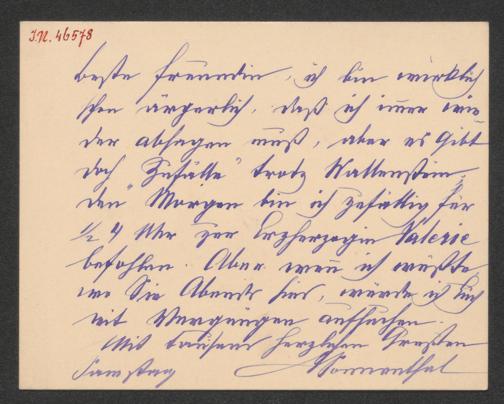 J.N. 46578
Beste Freundin, ich bin wirklich
schon ärgerlich, daß ich immer wie-
der absagen muß, aber es gibt
doch "Zufälle" trotz Wallenstein.
den Morgen bin ich zufällig für
1/2 4 Uhr zur Erzherzogin Valerie
befohlen. Aber wenn ich wüßte
wo Sie Abends sind, würde ich Sie
mit Vergnügen aufsuchen.
Mit tausend herzlichen Grüßen
Samstag Sonnenthal